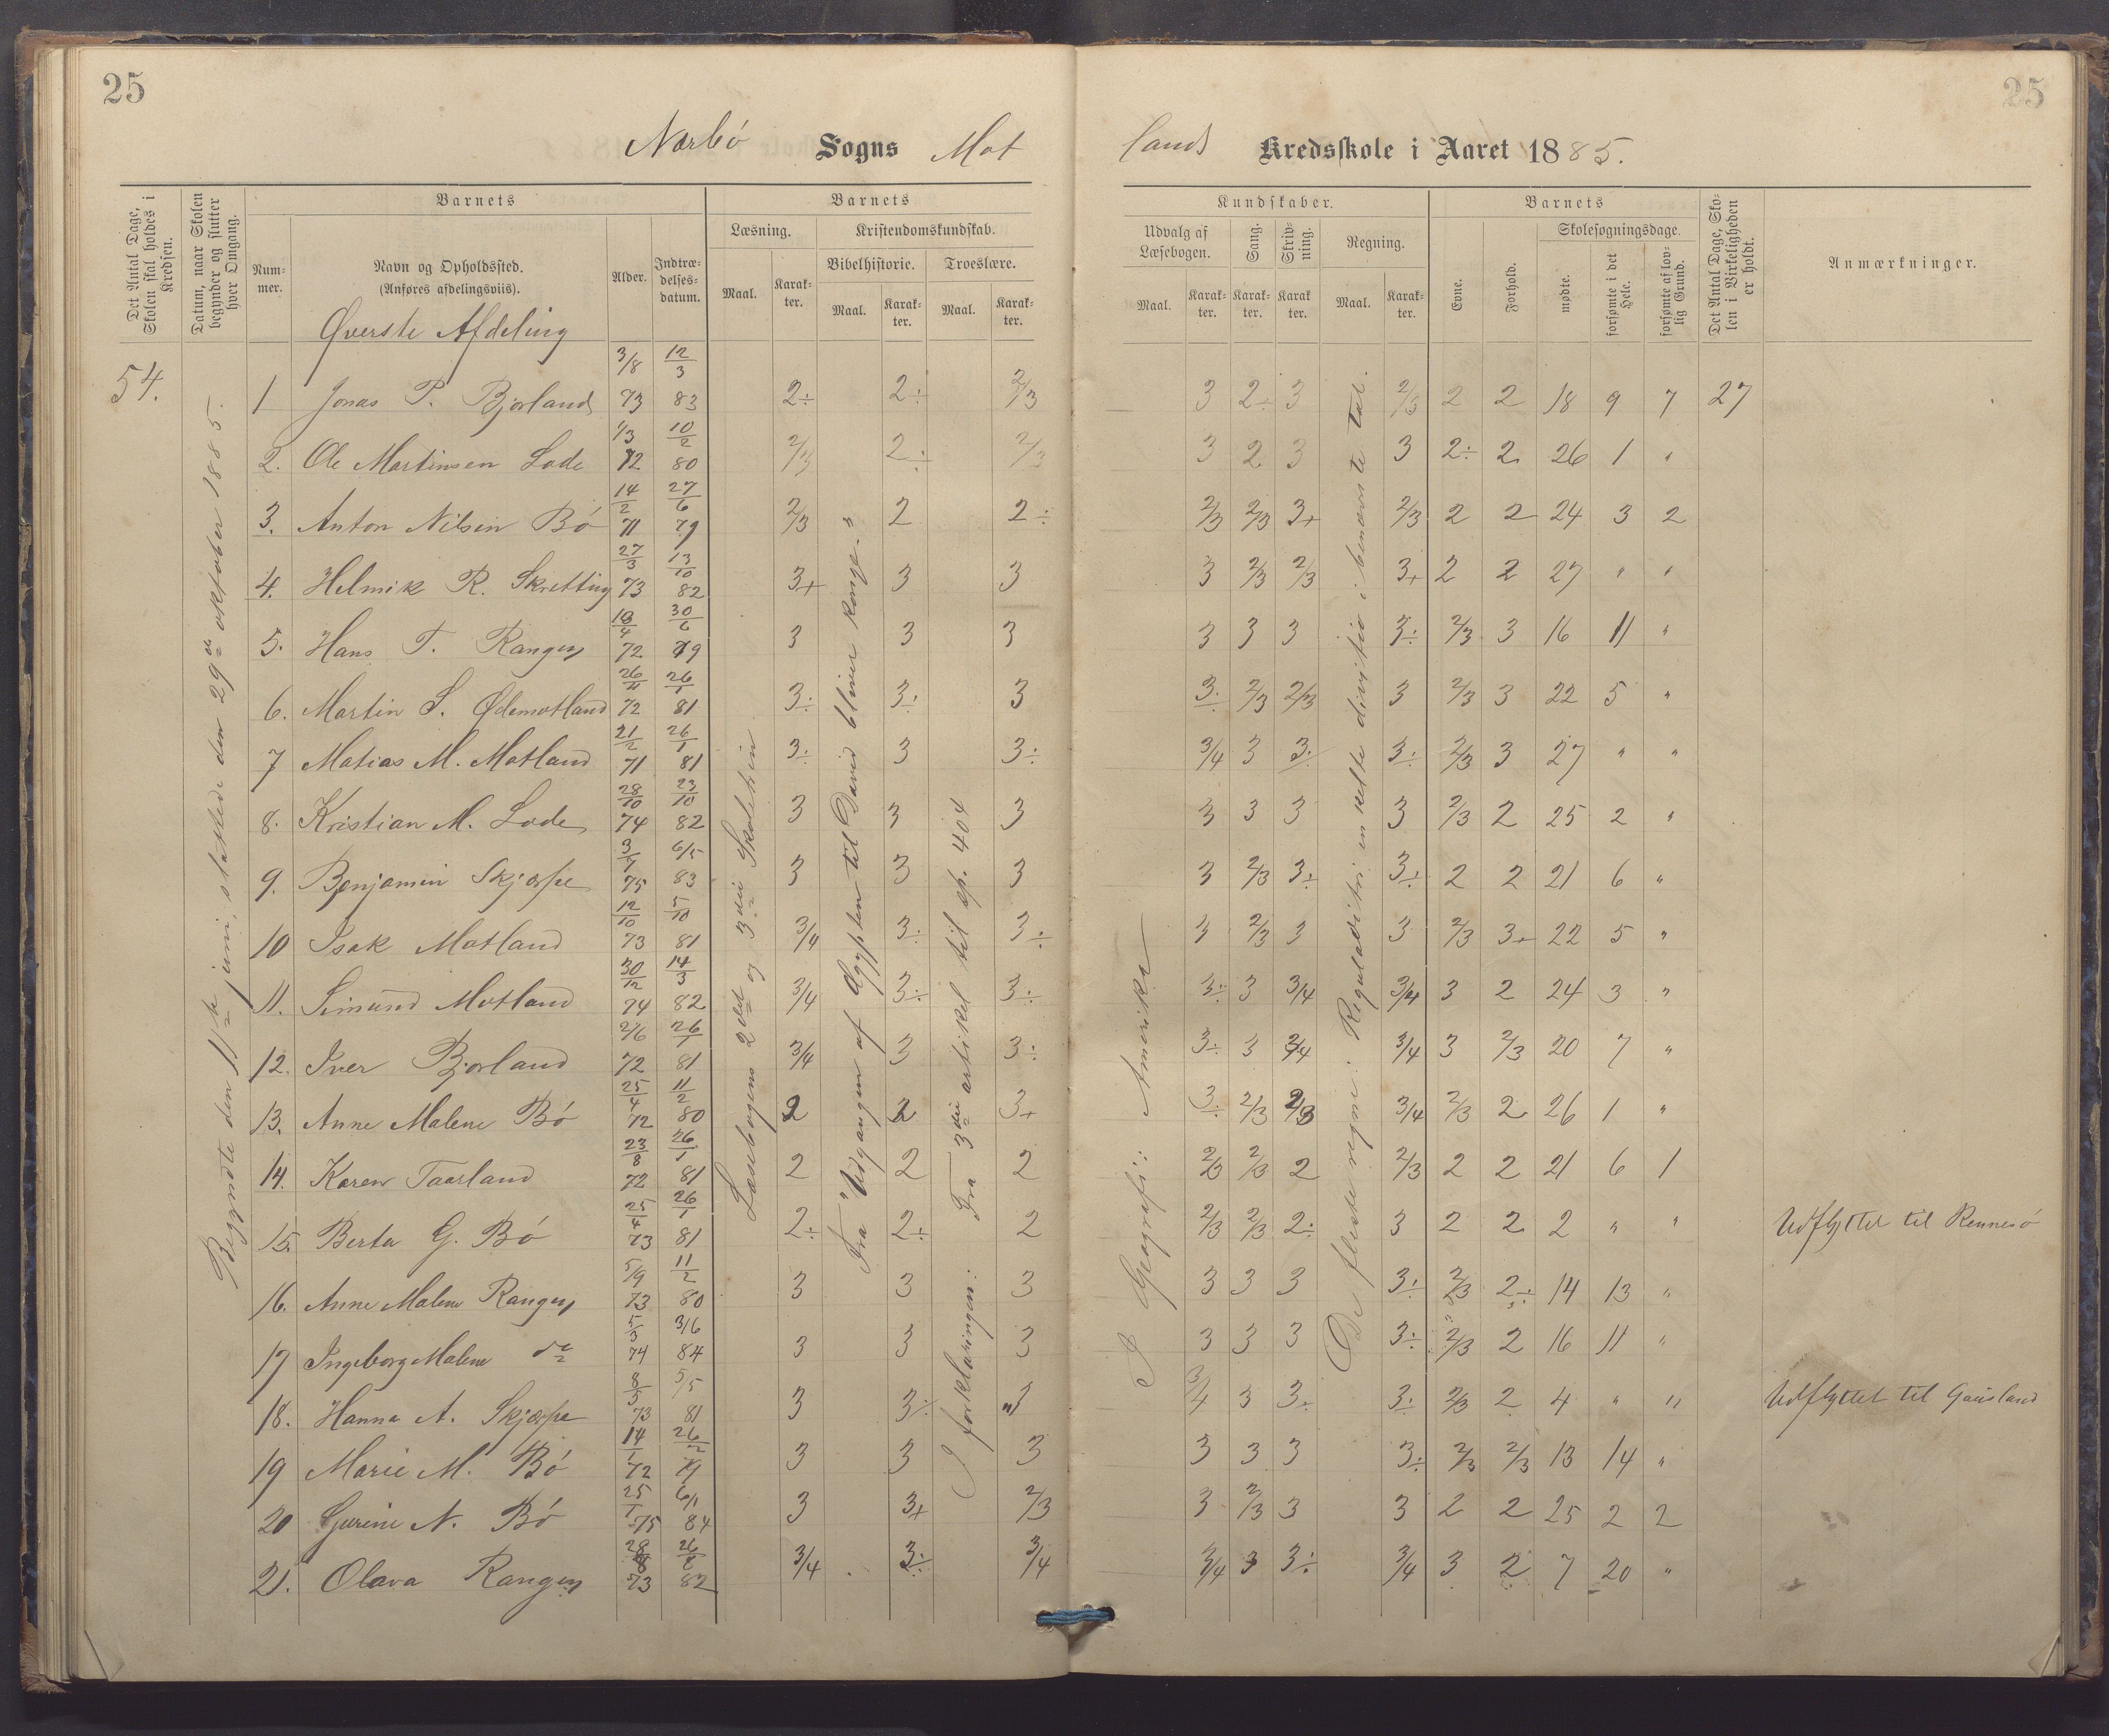 25
25
Nærbø Sogns Mot lands Kredsskole i Aaret 1885.
Det Antal Dage, Skolen skal holdes i Kredsen.
Datum, naar Skolen begynder og slutter hver Omgang.
Barnets
Barnets
Kundskaber.
Barnets
Det Antal Dage, Skolen i Virkeligheden er holdt.
Anmærkninger.
Nummer.
Navn og Opholdssted. (Anføres afdelingsviis).
Alder.
Indtrædelsesdatum.
Læsning.
Kristendomskundskab.
Bibelhistorie.
Troeslære.
Maal.
Karakter.
Maal.
Karakter.
Maal.
Karakter.
Udvalg af Læsebogen.
Sang.
Skrivning.
Regning.
Maal.
Karakter.
Karakter.
Karakter.
Maal.
Karakter.
Evne.
Forhold.
Skolesøgningsdage.
mødte.
forsømte i det Hele.
forsømte af lovlig Grund.
Øverste Afdeling
54.
Begyndte den 11te juni, sluttede den 29de oktober 1885.
Læsebogens 2det og 3die Skoletrin
Fra "Udgangen af Ægypten til David bliver konge."
I forklaringen: Fra 3die artikel til sp. 404
I Geografi: Amerika
De fleste regne: Reguladetri en kelte division i benævnte tal.
1 Jonas P. Bjorland 3/8 73 12/3 83 2÷ 2÷ 2/3 3 2÷ 3 2/3 2 2 18 9 7 27
2. Ole Martinsen Lode 1/3 72 10/2 80 2/3 2÷ 2/3 3 2 3 3 2÷ 2 26 1 "
3. Anton Nilsen Bø 14/2 71 27/6 79 2/3 2 2÷ 2/3 2/3 3+ 2/3 2 2 24 3 2
4. Helmik R. Skretting 27/3 73 13/10 82 3+ 3 3 3 2/3 2/3 3+ 2 2 27 " "
5. Hans T. Rangen 72 30/6 79 3 3 3 3 3 3 3÷ 2/3 3 16 11 "
6. Martin S. Ødemotland 26/11 72 26/1 81 3÷ 3÷ 3 3÷ 2/3 2/3 3 2/3 3 22 5 "
7 Matias M. Motland 21/2 71 26/1 81 3÷ 3 3÷ 3/4 3 3÷ 3÷ 2/3 3 27 " "
8. Kristian M. Lode 28/10 74 23/10 82 3 3 3 3 3 3 3 2/3 2 25 2 "
9. Benjamin Skjærpe 75 6/5 83 3 3 3 3 2/3 3÷ 3÷ 2 2 21 6 "
10 Isak Motland 12/10 73 5/10 81 3/4 3÷ 3÷ 3 2/3 3 3 2/3 3+ 22 5 "
11. Simund Motland 30/12 74 14/3 82 3/4 3÷ 3÷ 3÷ 3 3/4 3/4 3 2 24 3 "
12. Iver Bjorland 2/6 72 26/1 81 3/4 3 3÷ 3÷ 3 3/4 3/4 3 2/3 20 7 "
13. Anne Malene Bø 25/4 72 11/2 80 2 2 3+ 3÷ 2/3 2/3 3/4 2/3 2 26 1 "
14. Karen Taarland 23/8 72 26/1 81 2 2 2 2/3 2/3 2 2/3 2 2 21 6 1
15. Berta G. Bø 25/4 73 26/1 81 2÷ 2÷ 2 2/3 2/3 2÷ 3 2 2 2 " " Udflyttet til Rennesø
16. Anne Malene Rangen 5/9 73 11/2 80 3 3 3 3 3 3 3÷ 2/3 2÷ 14 13 "
17 Ingeborg Malene do 5/3 74 3/6 84 3 3 3 3 3 3 3÷ 2/3 2 16 11 "
18. Hanna A. Skjærpe 8/5 73 5/5 81 3 3÷ 3/4 3 3+ 3÷ 2/3 2 4 " " Udflyttet til Gausland
19 Marie M. Bø 14/1 72 79 3 3 3 3 3 3 3÷ 2/3 2/3 13 14 "
20 Gurine N. Bø 25/1 75 6/11 84 3 3+ 2/3 3 2/3 3 3 2 2 25 2 2
21. Olava Rangen 28/8 73 82 3/4 3÷ 3/4 3/4 3 3÷ 3/4 3 2 7 20 "